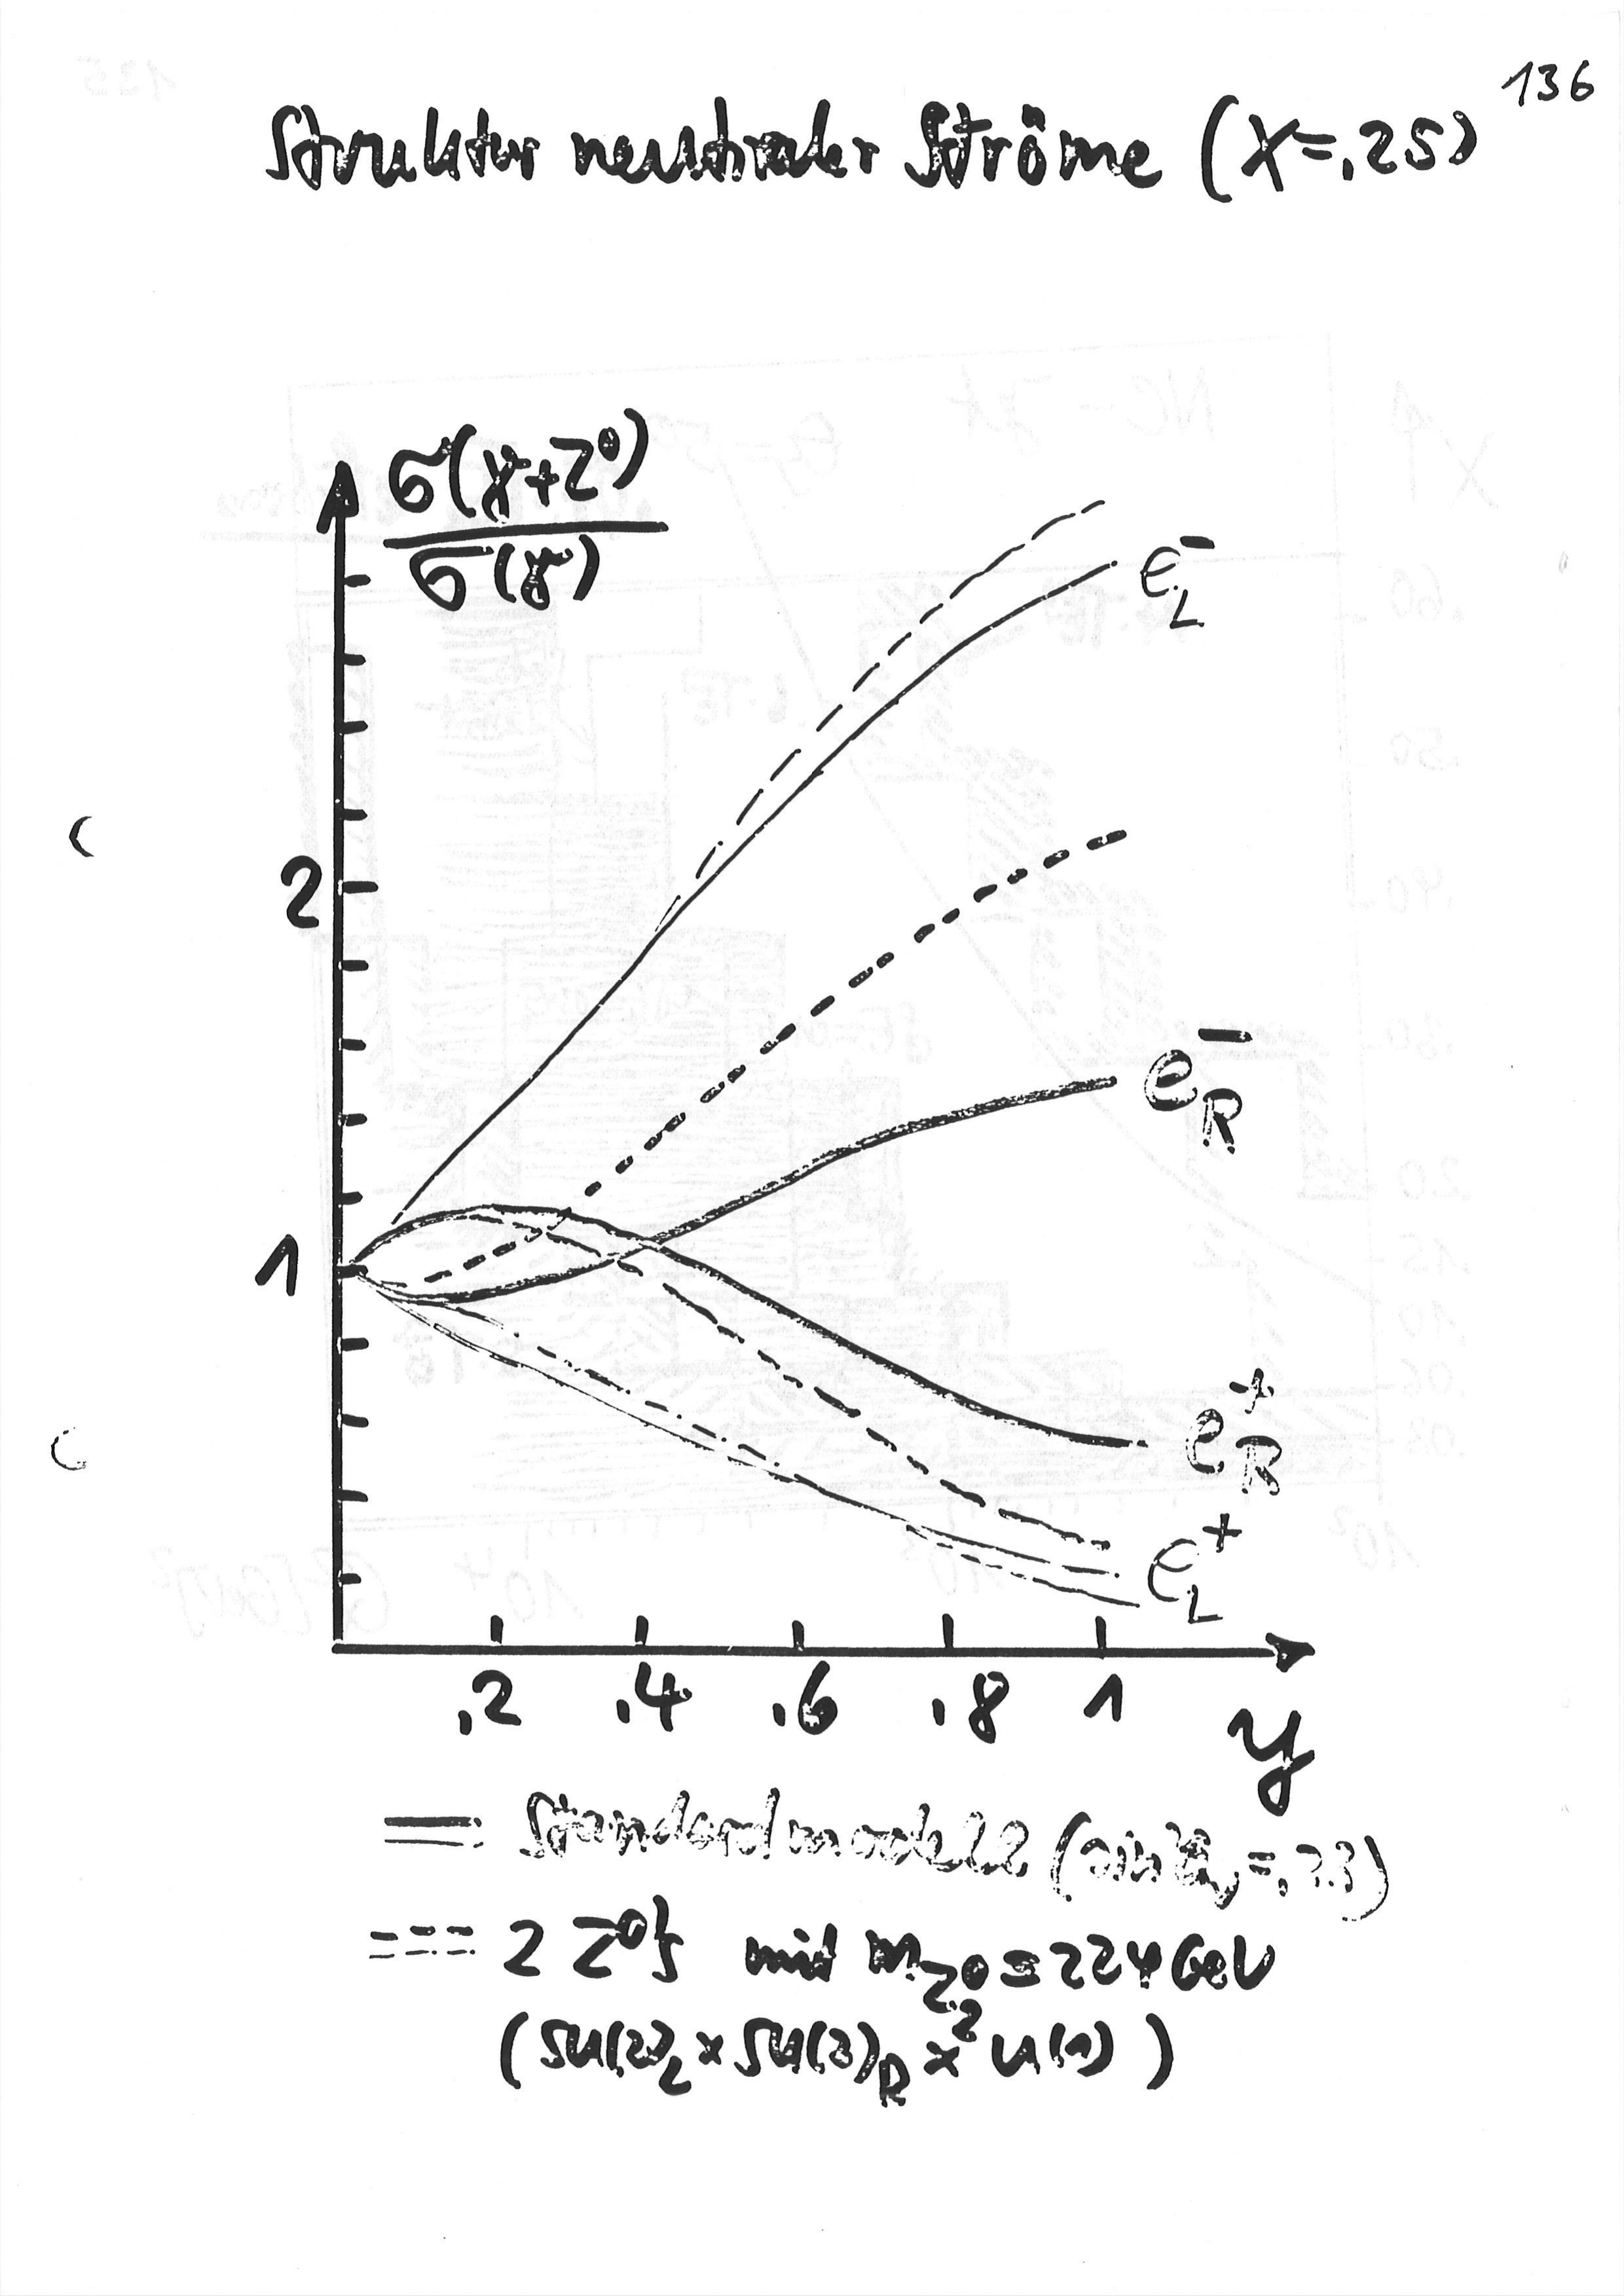 136
Struktur neutraler Ströme (X=.25)
σ(γ+Z⁰)
σ(γ)
e⁻L
2
e⁻R
1
e⁺R
e⁺L
.2 .4 .6 .8 1
y
Standardmodell (sin²θw=.23)
2 Z⁰'s mit mZ⁰₂ = 224 GeV
(SU(2)L x SU(2)R x U(1))